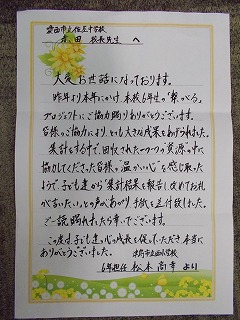 校長先生 へ
大変お世話になっております。
昨年より本年にかけ、本校6年生の「繋がる」
プロジェクトにご協力賜りありがとうございます。
皆様のご協力により、とても大きな成果をあげられました。
集計をする中で、回収された一つ一つの資源の中に
協力してくださった皆様の"温かい心"を感じ取った
ようで子ども達から「集計結果を報告し改めてお礼
が言いたい」との声があがり手紙を送付致しました。
ご一読賜れましたら幸いでございます。
この度は子ども達の心の成長を促していただき本当に
ありがとうございました。
6年担任 松本尚幸 より